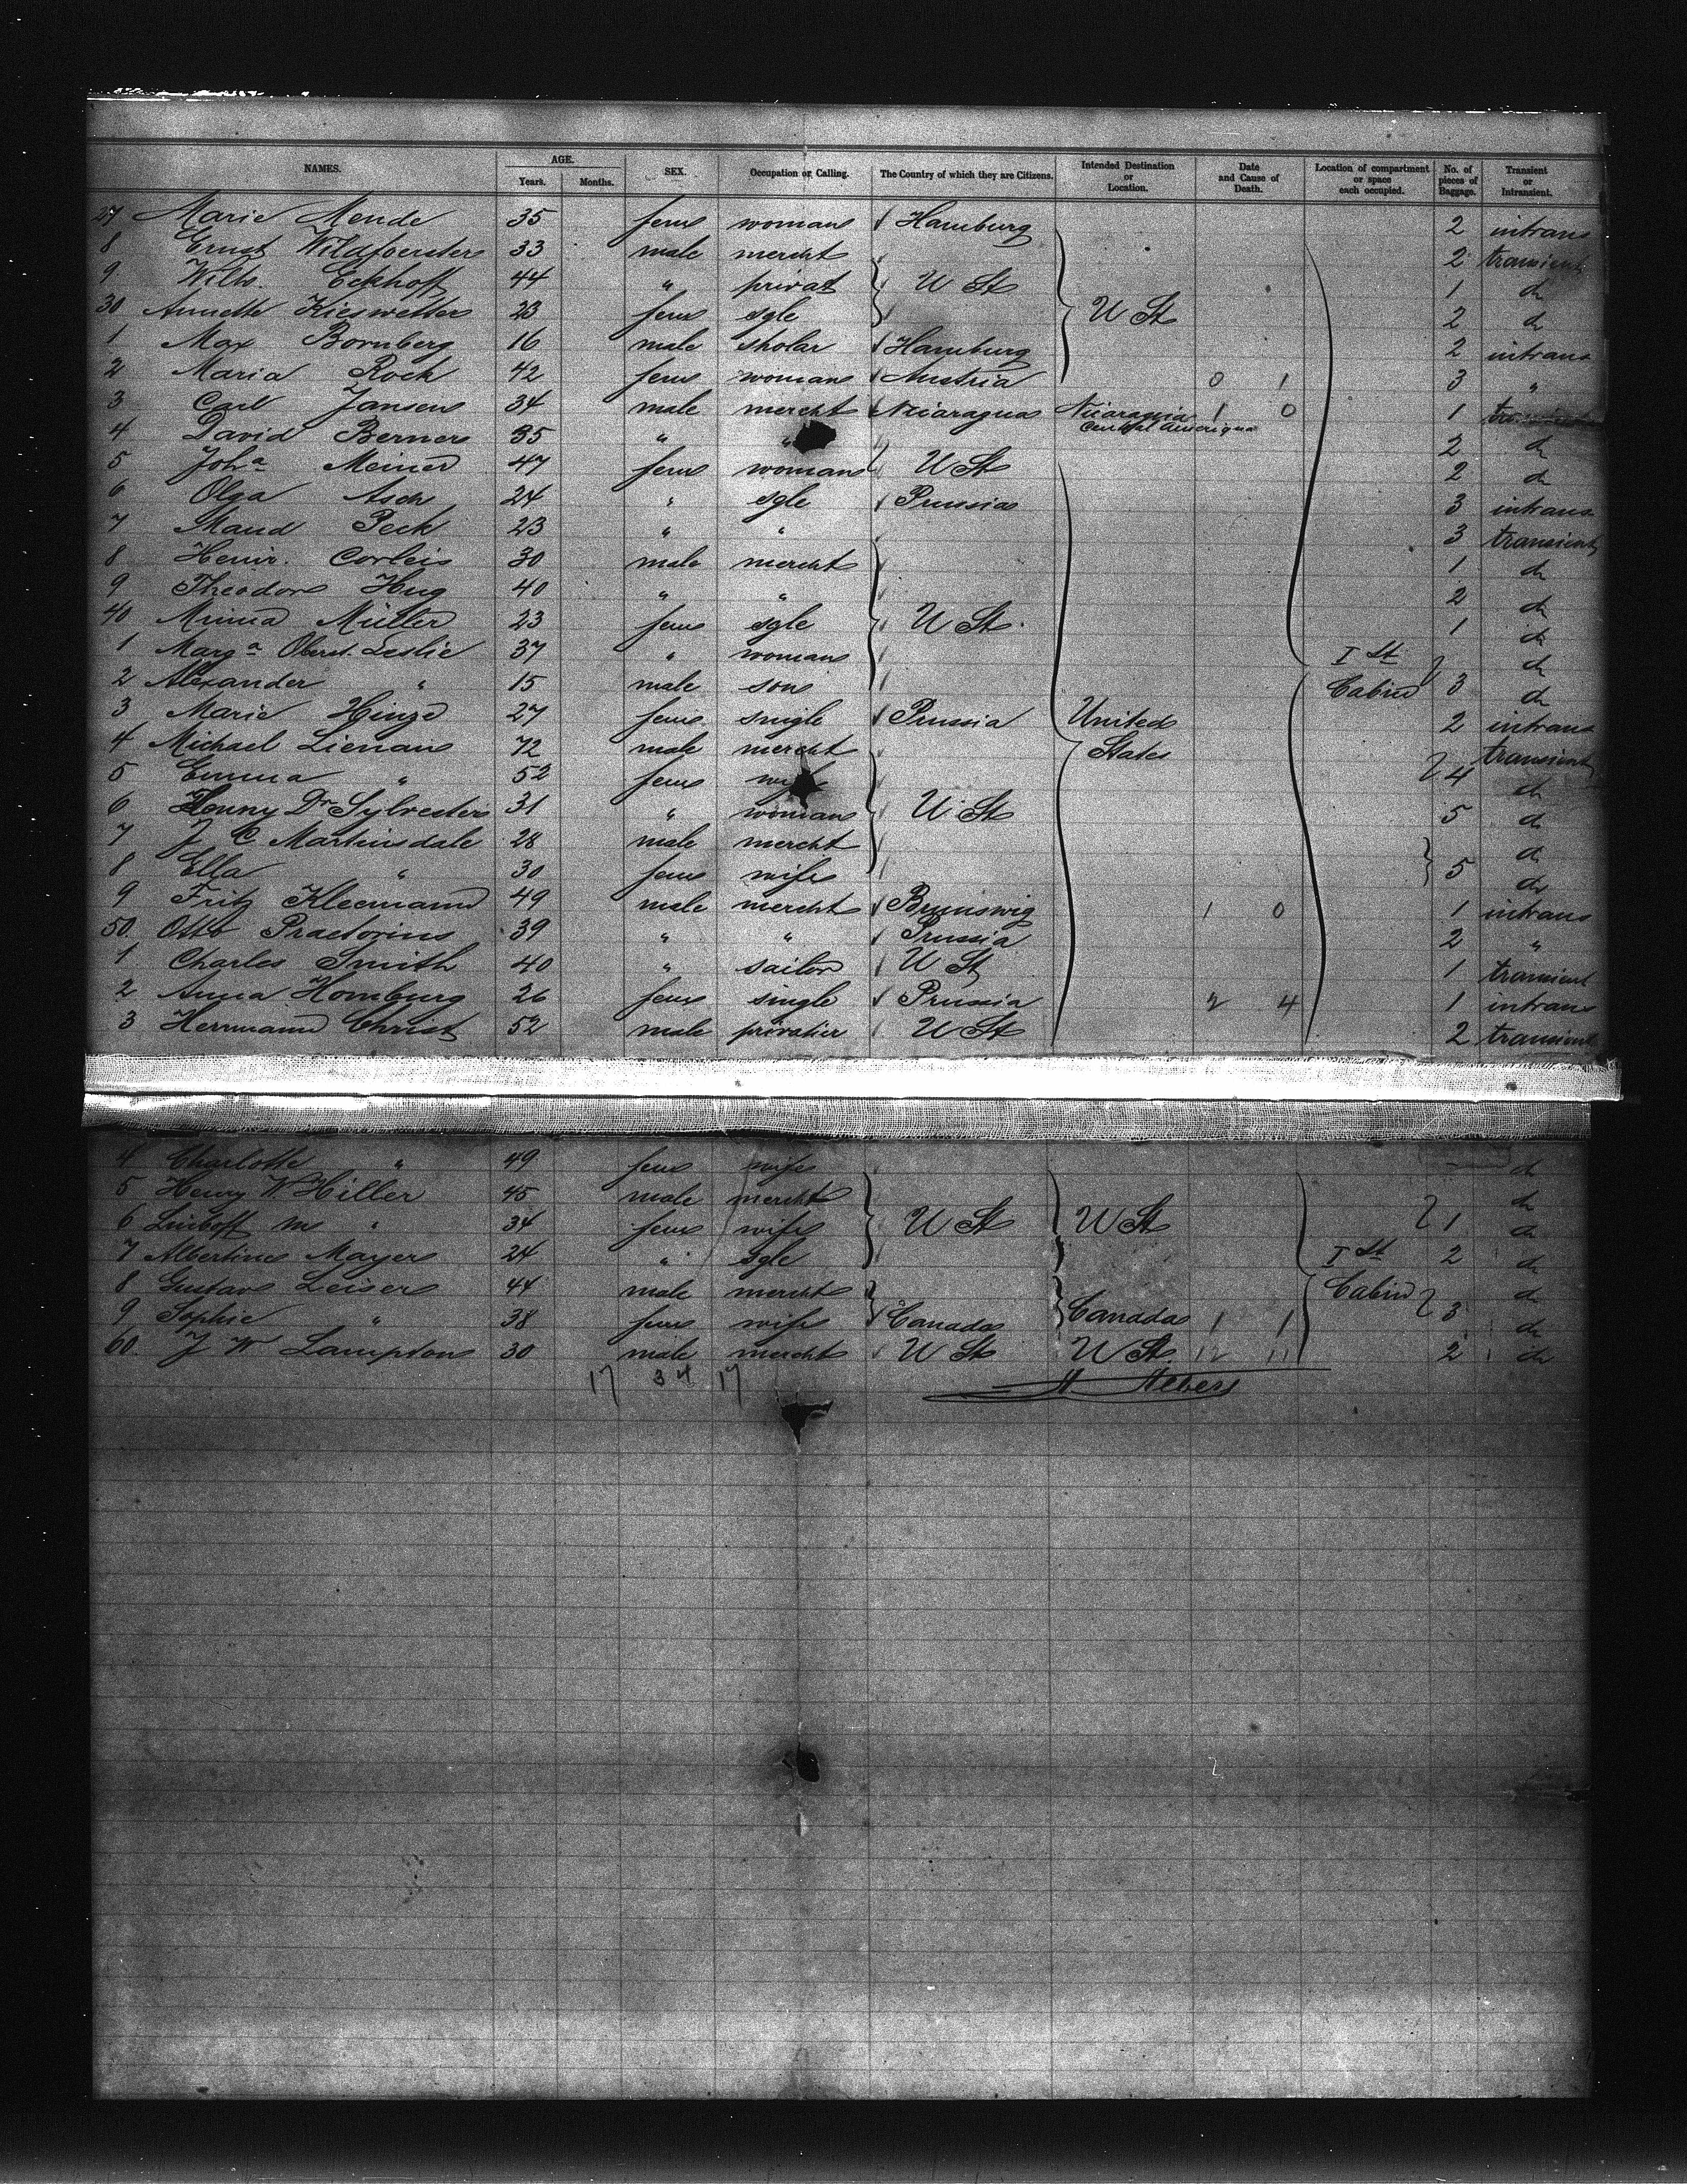 NAMES. AGE. Years. Months. SEX. Occupation or Calling. The Country of which they are Citizens. Intended Destination or Location. Date and Cause of Death. Location of compartment or space each occupied. No. of pieces of Baggage. Transient or Intransient.
27 Marie Mende 35 fem woman Hamburg 2 intrans
8 Ernst Wildfoerster 33 male mercht 2 transient
9 Wilh. Eckhoff 44 " privat U St 1 do
30 Annette Kieswetter 23 fem sgle U St 2 do
1 Max Bornberg 16 male sholar Hamburg 2 intrans
2 Maria Rock 42 fem woman Austria 0 1 3 "
3 Carl Jansen 34 male mercht Nicaragua Nicaragua Central Amerique 1 0 1
4 David Berner 35 " " 2 do
5 Joha Meiner 47 fem woman U St 2 do
6 Olga Asch 24 " sgle Prussia 3 intrans
7 Maud Peck 23 " " 3 transient
8 Heinr. Corleis 30 male mercht 1 do
9 Theodor Hug 40 " " 2 do
40 Minna Müller 23 fem sgle U St. 1 do
1 Marga Oberst. Leslie 37 " woman Ist do
2 Alexander " 15 male son Cabin 3 do
3 Marie Hinze 27 fem single Prussia United 2 intrans
4 Michael Lienau 72 male mercht States transient
5 Emma " 52 fem wife 4 do
6 Henny Dr Sylvester 31 " woman U St 5 do
7 J C Martinsdale 28 male mercht do
8 Ella " 30 fem wife 5 do
9 Fritz Kleemann 49 male mercht Brunswig 1 0 1 intrans
50. Otto Praetorius 39 " " Prussia 2 "
1 Charles Smith 40 " sailor U St 1 transient
2 Anna Homburg 26 fem single Prussia 2 4 1 intrans
3 Herrmann Christ 52 male privatier U St 2 transient
4 Charlotte " 49 fem wife do
5 Henry W Hiller 45 male mercht do
6 " 34 fem wife U St U St 1 do
7 Albertine Mayer 24 " sgle Ist 2 do
8 Gustav Leiser 44 male mercht Cabin do
9 Sophie " 38 fem wife Canada Canada 1 1 3 do
60. J W Lampton 30 male mercht U St U St. 12 11 2 do
17 34 17 H Albers